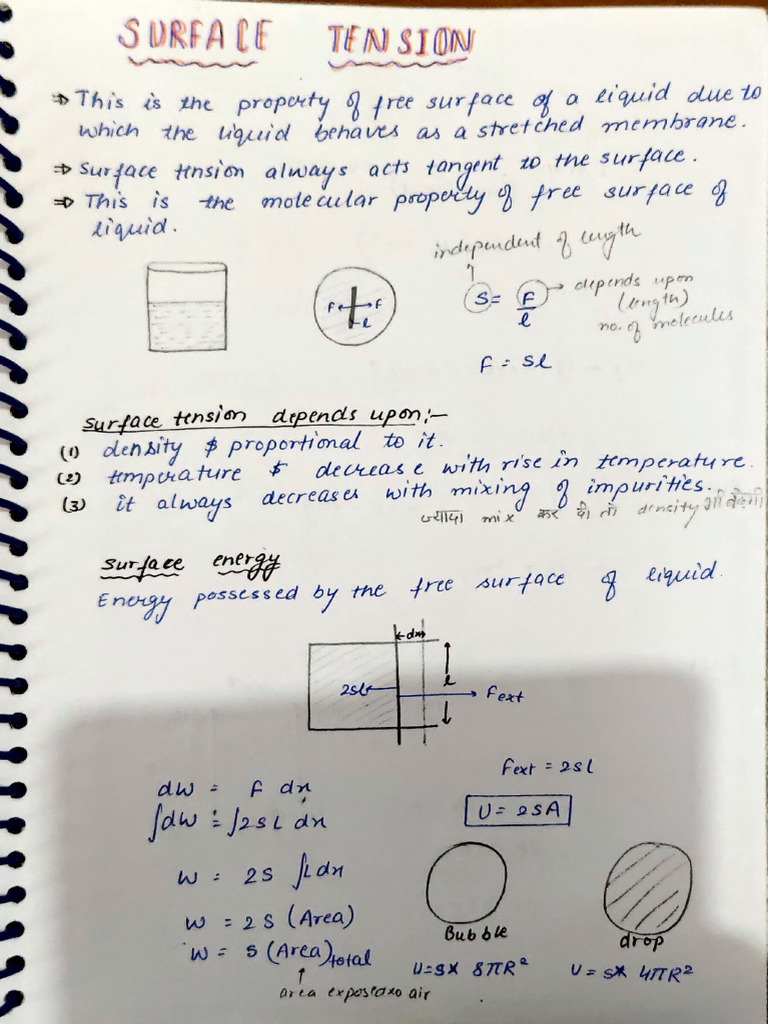 SURFACE TENSION
⇒ This is the property of free surface of a liquid due to
which the liquid behaves as a stretched membrane.
⇒ Surface tension always acts tangent to the surface.
⇒ This is the molecular property of free surface of
liquid.
independent of length
S = F/l → depends upon
(length)
no. of molecules
F F
l
F = Sl
Surface tension depends upon:-
(1) density & proportional to it.
(2) temperature & decrease with rise in temperature.
(3) it always decreases with mixing of impurities.
ज्यादा mix कर दो तो density भी
surface energy
Energy possessed by the free surface of liquid.
dx
2Sl l Fext
Fext = 2Sl
dW = F dx
U = 2SA
∫dW = ∫2SL dx
W = 2S ∫L dx
W = 2S (Area)
Bubble drop
W = S (Area)total
U = S* 8πR² U = S* 4πR²
area exposed to air